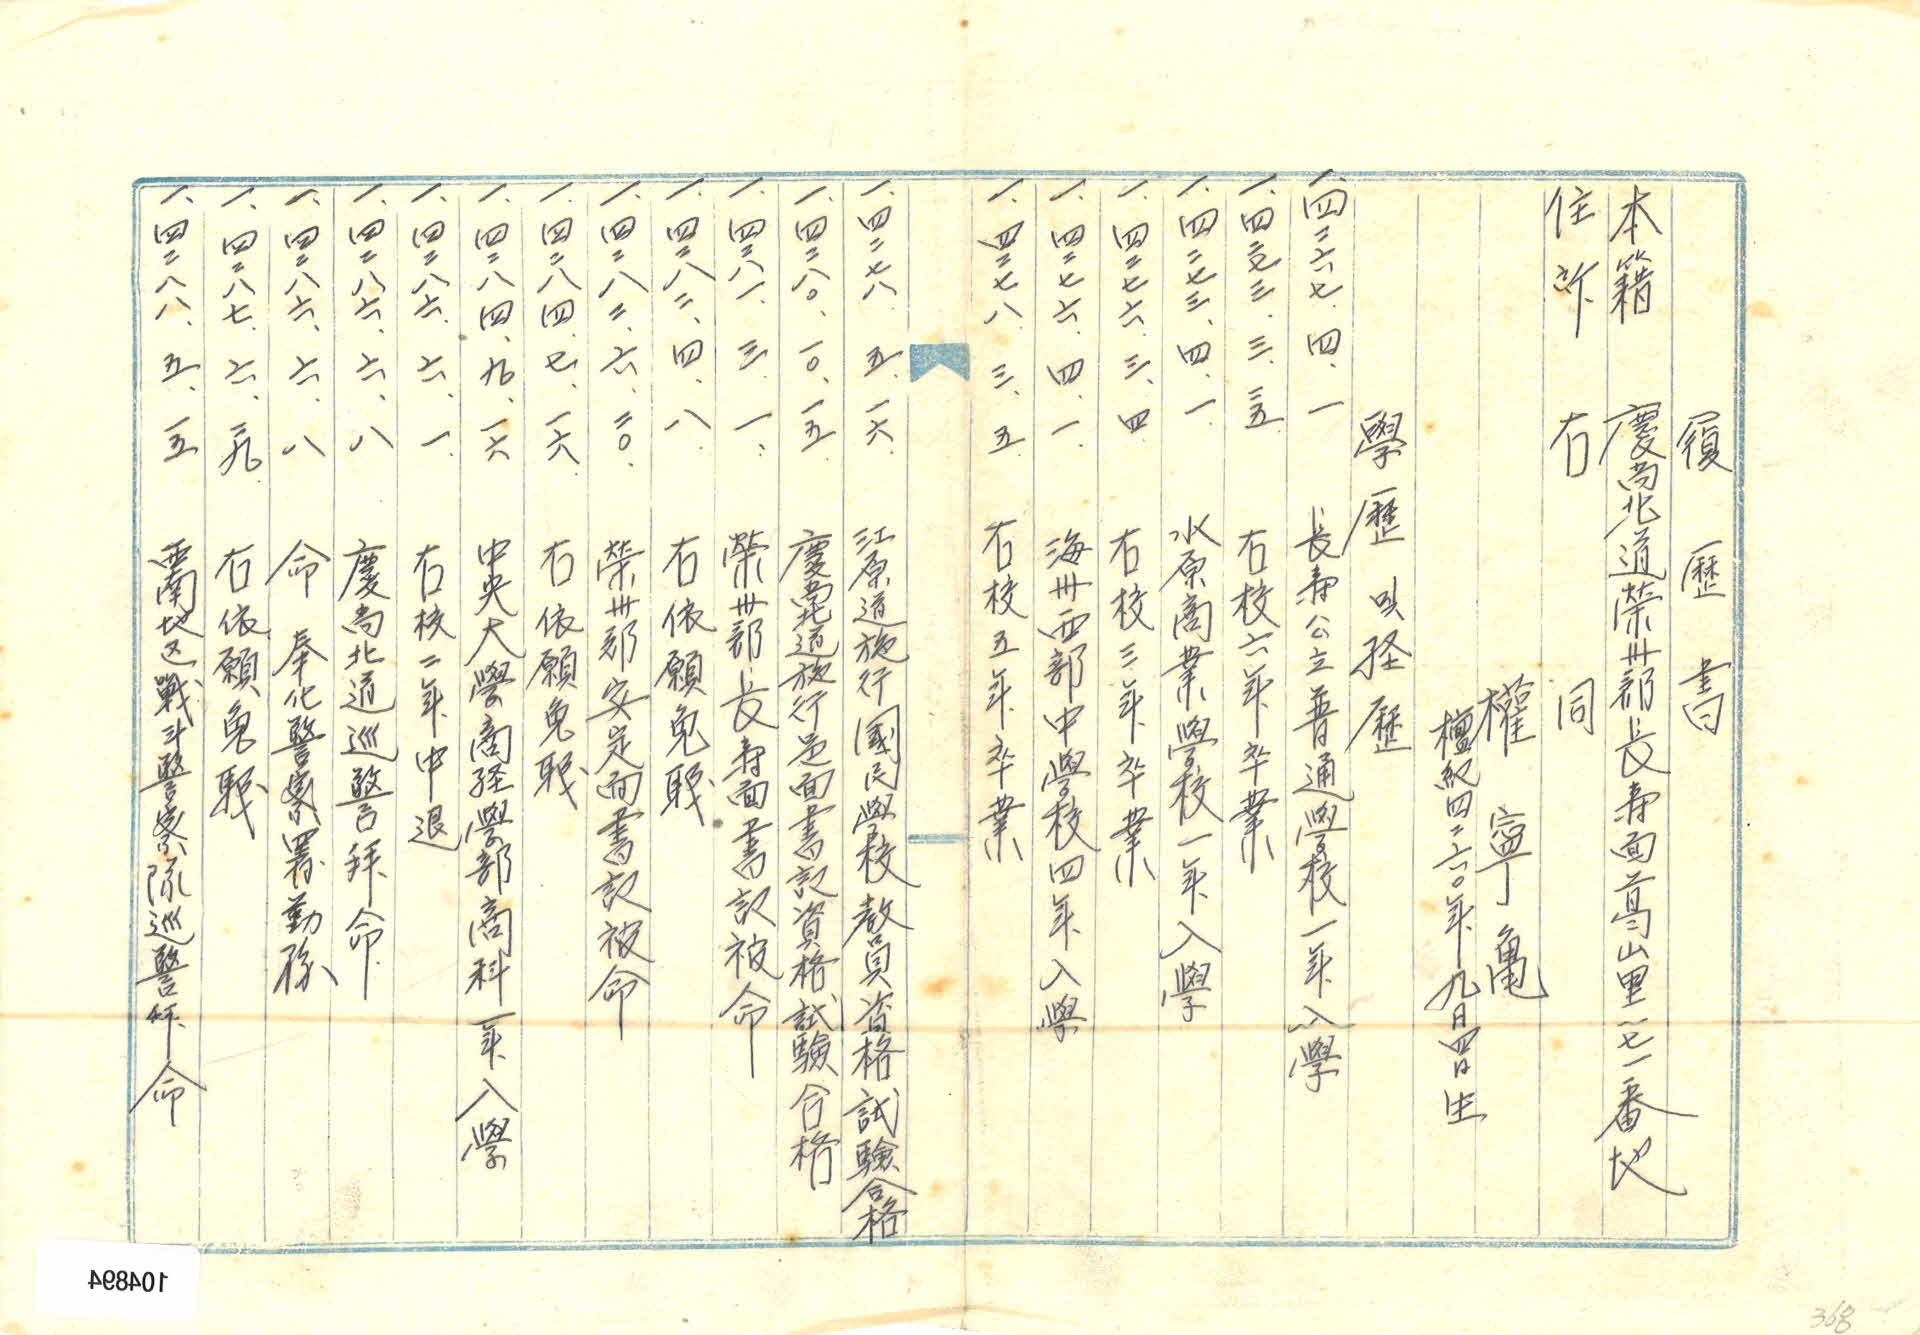 履歷書
本籍 慶尚北道榮州郡長壽面葛山里一七一番地
住所 右同
權寧龜
檀紀四二六〇年九月四日生
學歷 및 経歷
一. 四二六七. 四. 一 長壽公立普通學校一年入學
一. 四二七三. 三. 二五 右校六年卒業
一. 四二七三. 四. 一 水原商業學校一年入學
一. 四二七六. 三. 四 右校三年卒業
一. 四二七六. 四. 一 海州西部中學校四年入學
一. 四二七八. 三. 五 右校五年卒業
一. 四二七八. 五. 一六 江原道施行國民學校教員資格試驗合格
一. 四二八〇. 一〇. 一五 慶尚北道施行邑面書記資格試驗合格
一. 四二八一. 三. 一 榮州郡長壽面書記被命
一. 四二八二. 四. 八 右依願免職
一. 四二八二. 六. 二〇 榮州郡安定面書記被命
一. 四二八四. 七. 一六 右依願免職
一. 四二八四. 九. 一六 中央大學商経學部商科一年入學
一. 四二八六. 六. 一 右校二年中退
一. 四二八六. 六. 八 慶尚北道巡警拜命
一. 四二八六. 六. 八 命 奉化警察署勤務
一. 四二八七. 六. 二九 右依願免職
一. 四二八八. 五. 一五 西南地区戰斗警察隊巡警拜命
104894
368